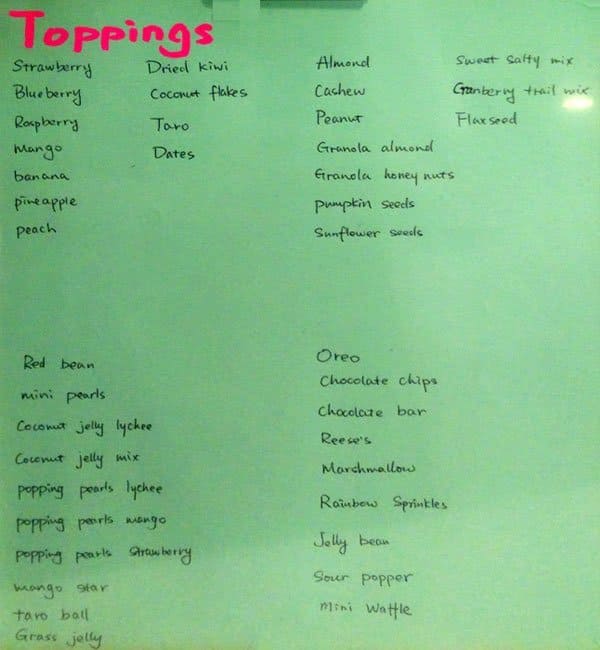 Toppings
Strawberry
Blueberry
Raspberry
Mango
banana
pineapple
peach
Dried kiwi
Coconut flakes
Taro
Dates
Almond
Cashew
Peanut
Granola almond
Granola honey nuts
pumpkin seeds
Sunflower seeds
Sweet salty mix
Cranberry trail mix
Flaxseed
Red bean
mini pearls
Coconut jelly lychee
Coconut jelly mix
popping pearls lychee
popping pearls mango
popping pearls strawberry
mango star
taro ball
Grass jelly
Oreo
Chocolate chips
Chocolate bar
Reese's
Marshmallow
Rainbow Sprinkles
Jelly bean
Sour popper
mini Waffle